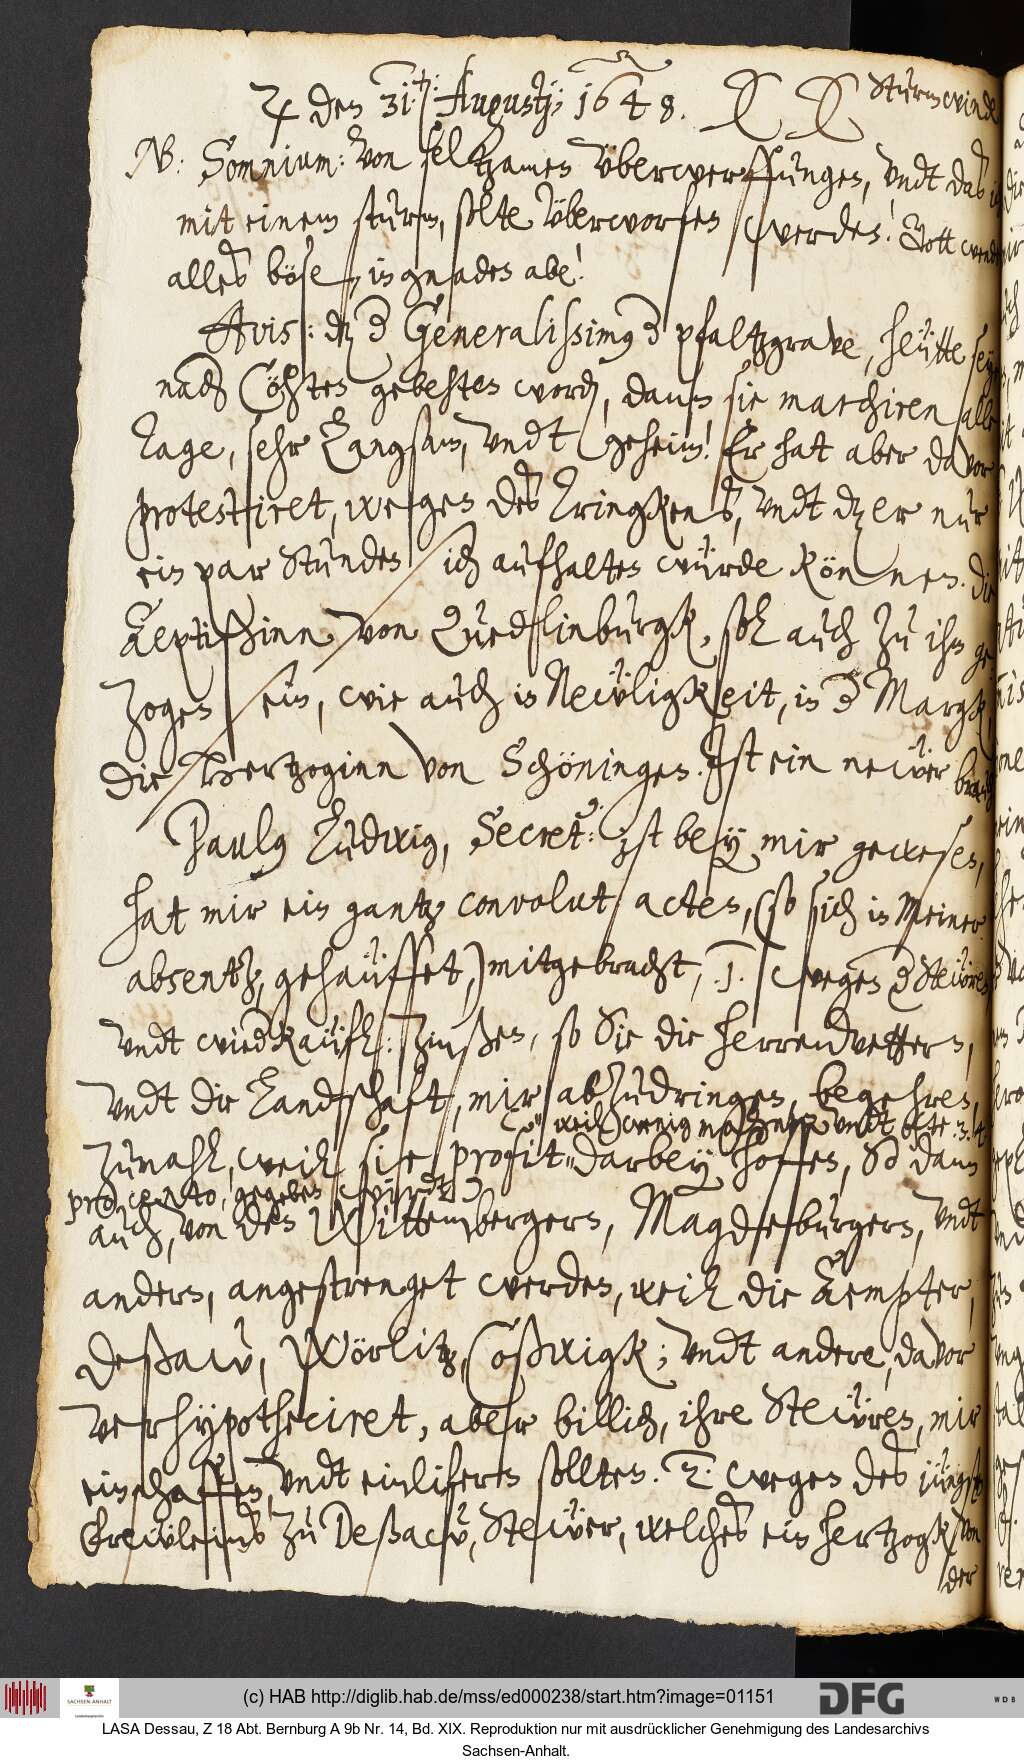 ♃ den 31.ten: Augustj; 1648.
Sturmwinde
NB: Somnium: von seltzamen Überwerffungen, undt das ich
mit einem sturm, solte überworfen werden! Gott wende
alles böse, in gnaden abe!
Avis: dz der Generalissimus der pfaltzgrave, heütte seye
nach Cöhten gebehten word, dann sie marchiren alle
Tage, sehr Langsam, undt geheim! Er hat aber davor
protestiret, wegen des Trinckens, undt dz er nur
ein par Stunden sich aufhalten würde können. die
Aeptissinn von Quedlinburgk, sol auch zu ihm ge
zogen sein, wie auch in Neuligkeit, in der Margk,
die Hertzoginn von Schöningen. Ist ein newer brauch
Paulus Ludwig, Secret: ist bey mir gewesen,
hat mir ein gantz convolut acten, (so sich in Meiner
absentz, gehaüffet,) mitgebracht, .1. wegen der Steüren
undt wiederkaüfl: Zinßen, so Sie die herrenvettern,
undt die Landschaft, mir abzudringen, begehren,
weil wenig undt 3. 4
zumahl, weil sie profit darbey hoffen, So dann
pro cento, gegeben würdt)
auch, von den Wittembergern, Magdeburgern, undt
andern, angestrenget werden, weil die Aempter,
Deßaw, Wörlitz, Coßwigk; undt andere, davor
verhypotheciret, aber billich, ihre Steüren, mir
einschaffen, undt einlifern sollten. 2. wegen des jüngsten
Frewleins zu Deßaw, Stewer, welches ein hertzogk von
der
(c) HAB http://diglib.hab.de/mss/ed000238/start.htm?image=01151
SACHSEN-ANHALT
DFG
WDB
LASA Dessau, Z 18 Abt. Bernburg A 9b Nr. 14, Bd. XIX. Reproduktion nur mit ausdrücklicher Genehmigung des Landesarchivs
Sachsen-Anhalt.